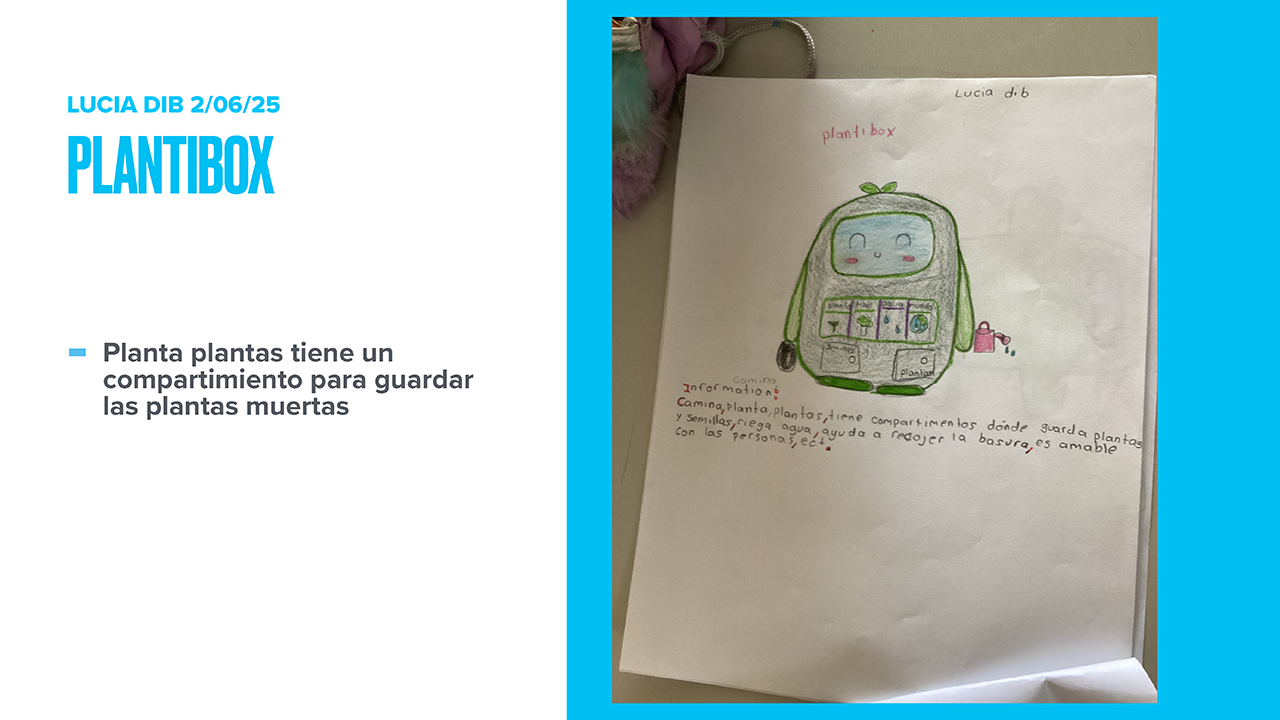 LUCIA DIB 2/06/25
PLANTIBOX
Planta plantas tiene un
compartimiento para guardar
las plantas muertas
Lucia dib
plantibox
planta
agua
mundo
plantas
Camina
Information:
Camina, planta, plantas, tiene compartimentos dónde guarda plantas
y semillas, riega agua, ayuda a recojer la basura, es amable
con las personas, ect.